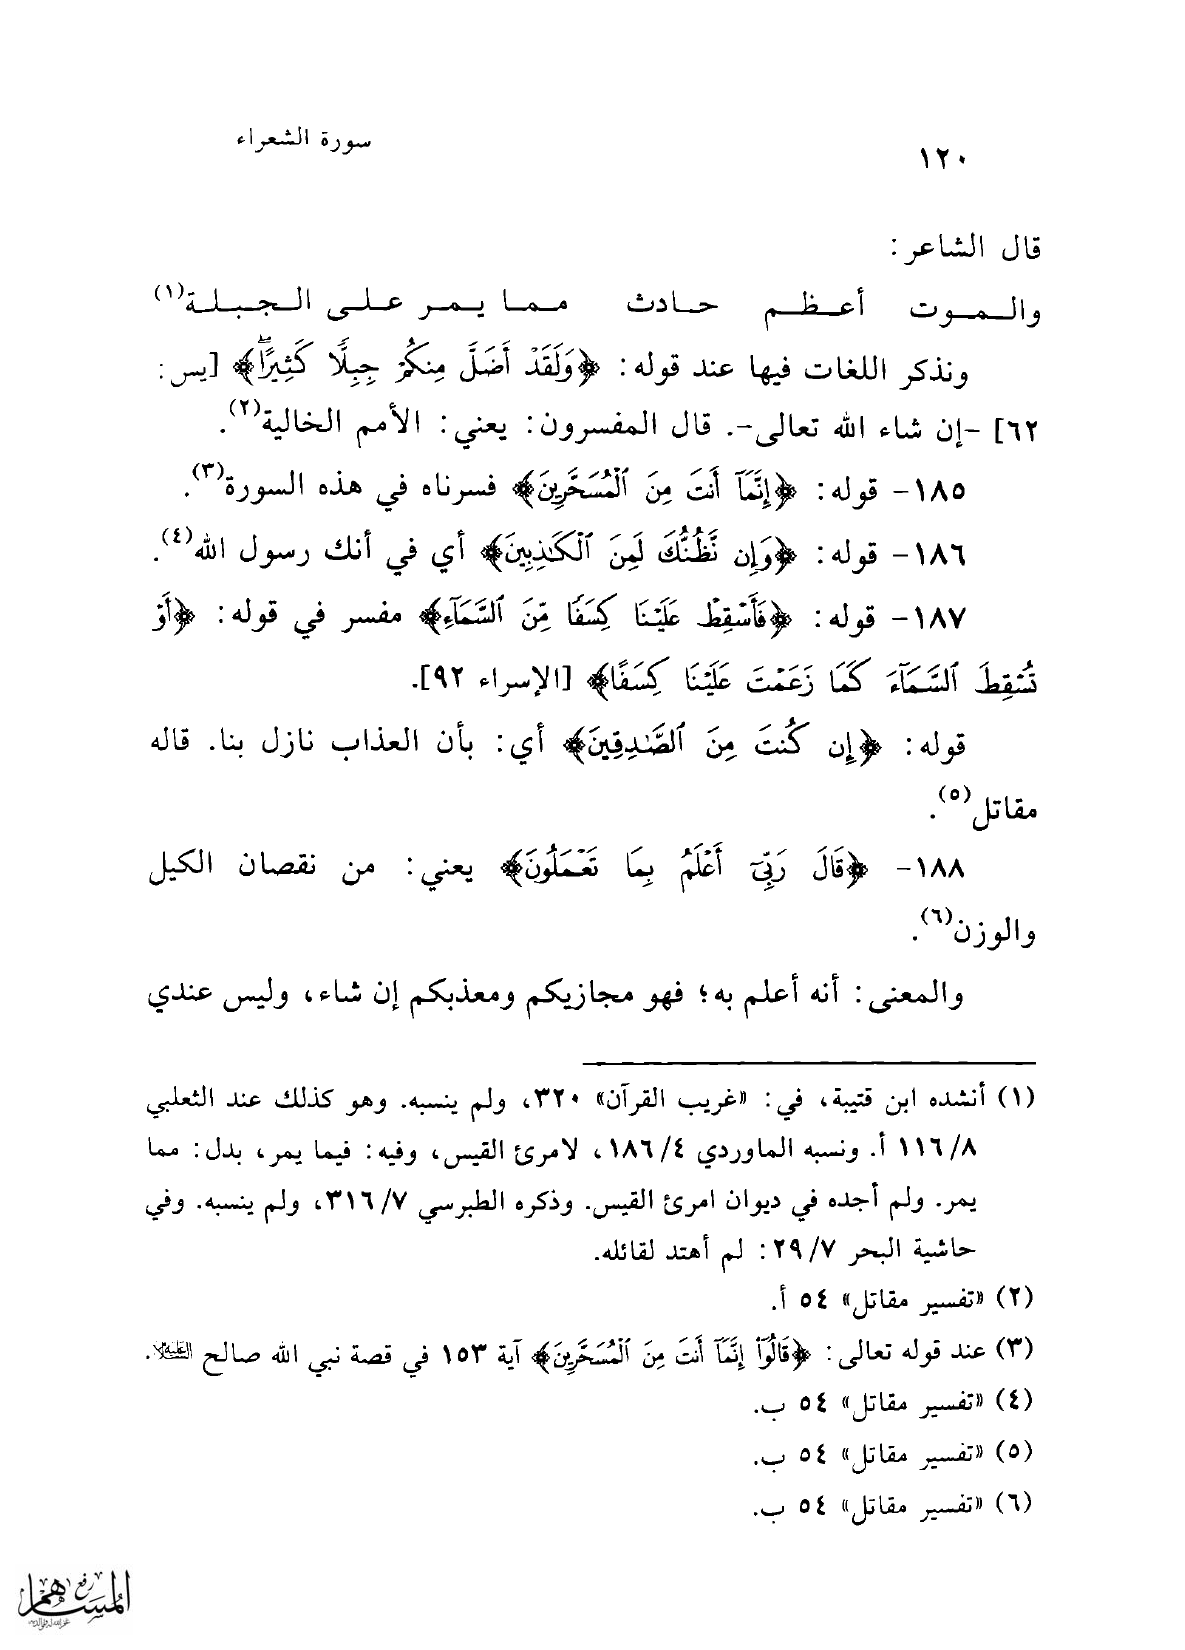 سورة الشعراء
١٢٠
قال الشاعر:
والـمـوت أعـظـم حـادث مـمـا يـمـر عـلـى الـجـبـلـة(١)
ونذكر اللغات فيها عند قوله: ﴿وَلَقَدْ أَضَلَّ مِنكُمْ جِبِلًّا كَثِيرًاۖ﴾ [يس:
٦٢] -إن شاء الله تعالى-. قال المفسرون: يعني: الأمم الخالية(٢).
١٨٥- قوله: ﴿إِنَّمَآ أَنتَ مِنَ ٱلْمُسَحَّرِينَ﴾ فسرناه في هذه السورة(٣).
١٨٦- قوله: ﴿وَإِن نَّظُنُّكَ لَمِنَ ٱلْكَٰذِبِينَ﴾ أي في أنك رسول الله(٤).
١٨٧- قوله: ﴿فَأَسْقِطْ عَلَيْنَا كِسَفًا مِّنَ ٱلسَّمَآءِ﴾ مفسر في قوله: ﴿أَوْ
تُسْقِطَ ٱلسَّمَآءَ كَمَا زَعَمْتَ عَلَيْنَا كِسَفًا﴾ [الإسراء ٩٢].
قوله: ﴿إِن كُنتَ مِنَ ٱلصَّٰدِقِينَ﴾ أي: بأن العذاب نازل بنا. قاله
مقاتل(٥).
١٨٨- ﴿قَالَ رَبِّىٓ أَعْلَمُ بِمَا تَعْمَلُونَ﴾ يعني: من نقصان الكيل
والوزن(٦).
والمعنى: أنه أعلم به؛ فهو مجازيكم ومعذبكم إن شاء، وليس عندي
(١) أنشده ابن قتيبة، في: «غريب القرآن» ٣٢٠، ولم ينسبه. وهو كذلك عند الثعلبي
٨/ ١١٦ أ. ونسبه الماوردي ٤/ ١٨٦، لامرئ القيس، وفيه: فيما يمر، بدل: مما
يمر. ولم أجده في ديوان امرئ القيس. وذكره الطبرسي ٧/ ٣١٦، ولم ينسبه. وفي
حاشية البحر ٧/ ٢٩: لم أهتد لقائله.
(٢) «تفسير مقاتل» ٥٤ أ.
(٣) عند قوله تعالى: ﴿قَالُوٓاْ إِنَّمَآ أَنتَ مِنَ ٱلْمُسَحَّرِينَ﴾ آية ١٥٣ في قصة نبي الله صالح عليه السلام.
(٤) «تفسير مقاتل» ٥٤ ب.
(٥) «تفسير مقاتل» ٥٤ ب.
(٦) «تفسير مقاتل» ٥٤ ب.
رفع
المساهم